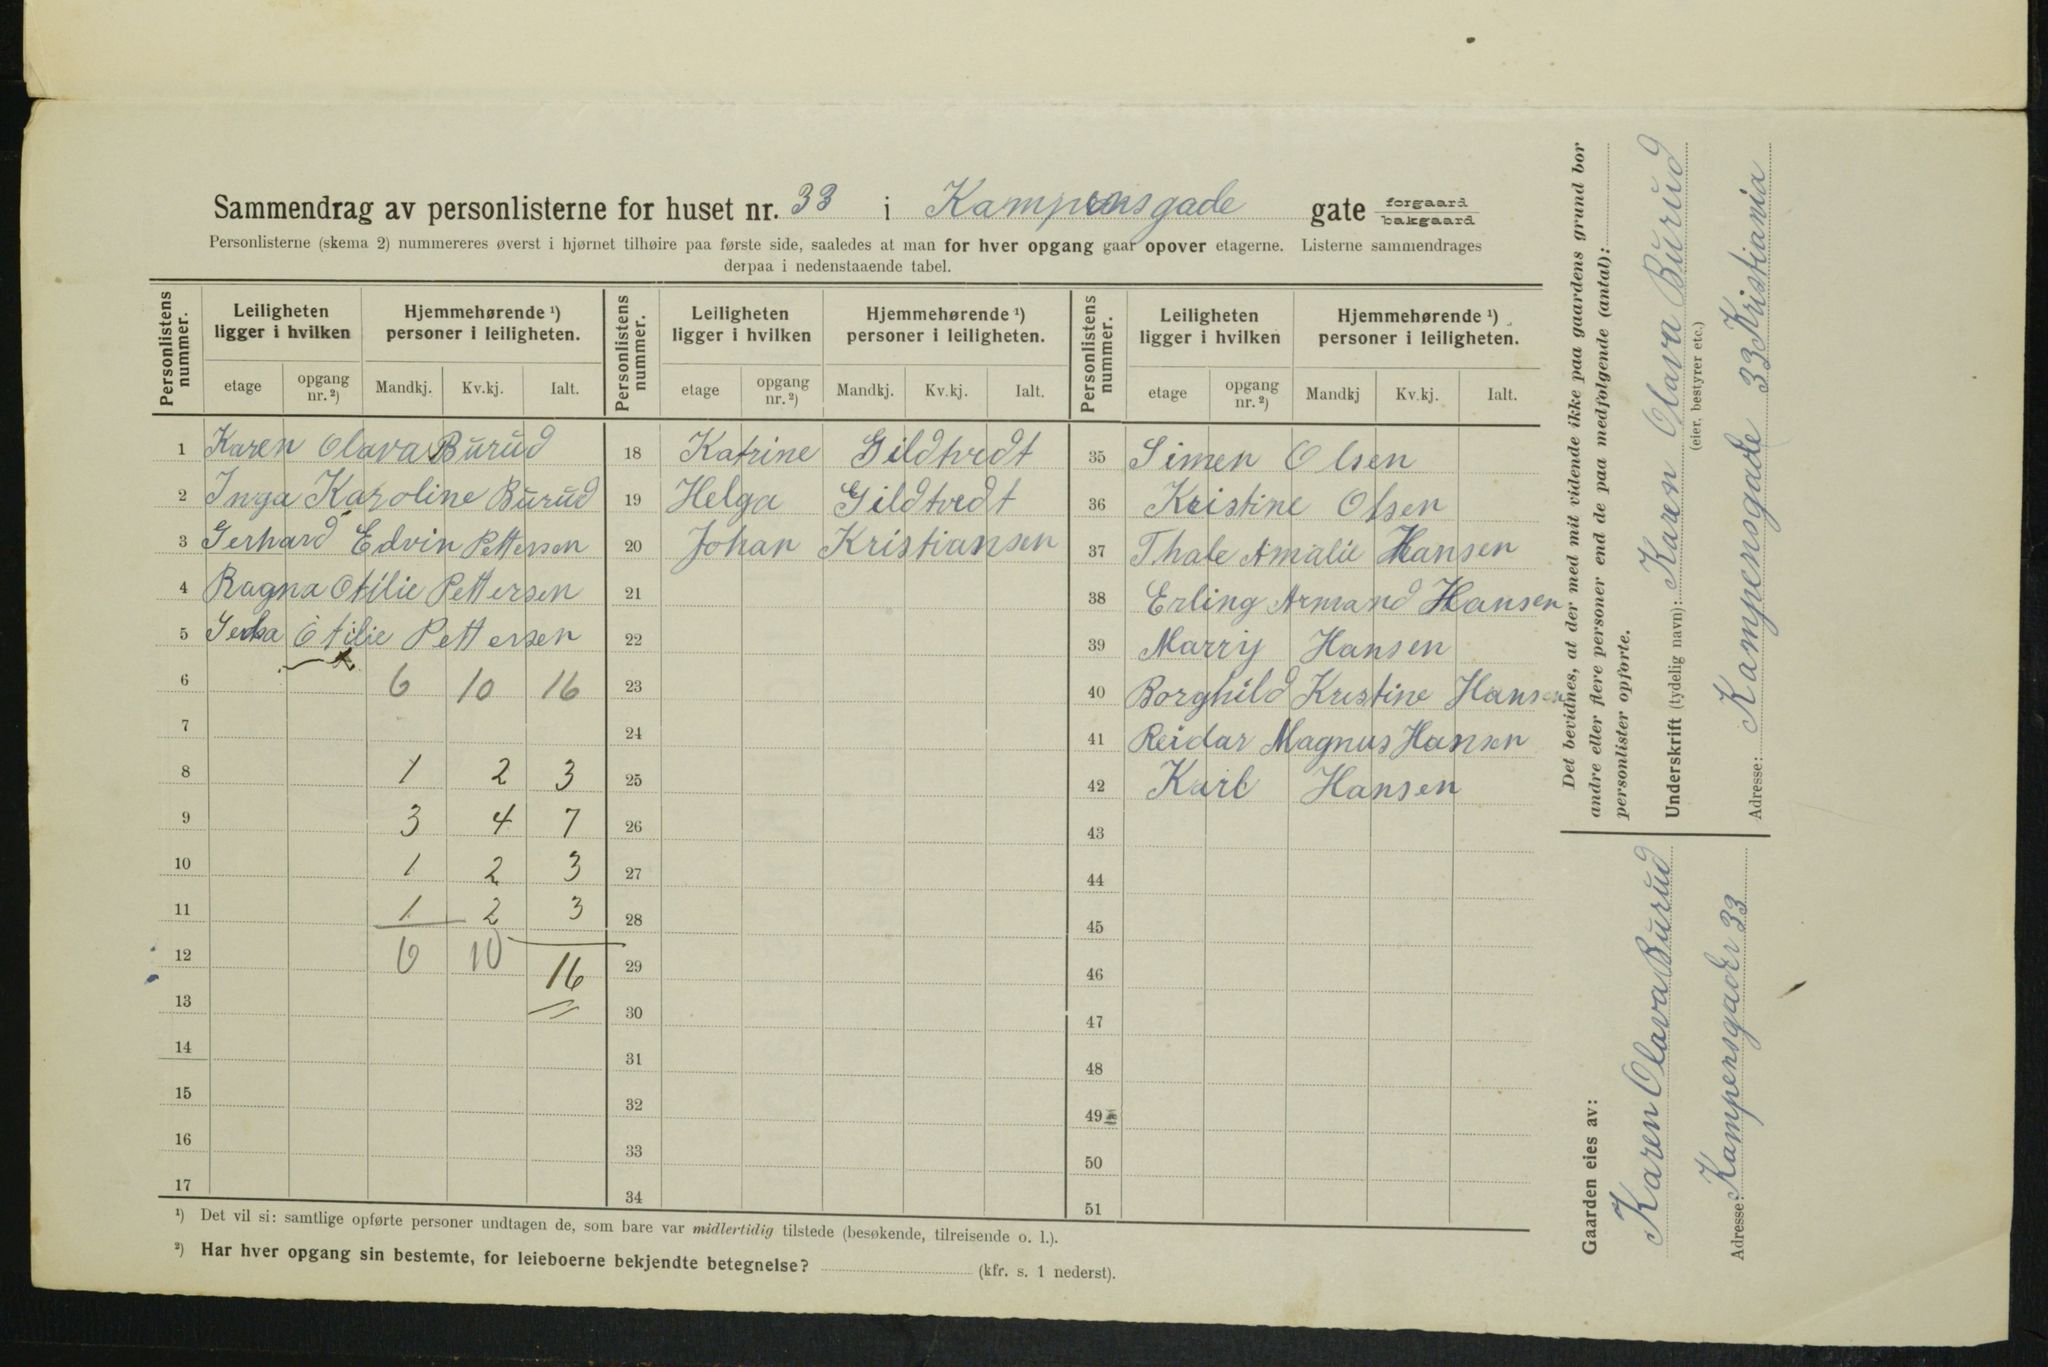 Sammendrag av personlisterne for huset nr. 33 i Kampensgade gate forgaard bakgaard
Personlisterne (skema 2) nummereres øverst i hjørnet tilhøire paa første side, saaledes at man for hver opgang gaar opover etagerne. Listerne sammendrages
derpaa i nedenstaaende tabel.
Personlistens nummer. Leiligheten ligger i hvilken Hjemmehørende ¹) personer i leiligheten. Personlistens nummer. Leiligheten ligger i hvilken Hjemmehørende ¹) personer i leiligheten. Personlistens nummer. Leiligheten ligger i hvilken Hjemmehørende ¹) personer i leiligheten.
etage opgang nr. ²) Mandkj. Kv.kj. Ialt. etage opgang nr. ²) Mandkj. Kv.kj. Ialt. etage opgang nr. ²) Mandkj Kv.kj. Ialt.
1 Karen Olava Burud
2 Inga Karoline Burud
3 Gerhard Edvin Pettersen
4 Ragna Otilie Pettersen
5 Otilie Pettersen
6 6 10 16
7
8 1 2 3
9 3 4 7
10 1 2 3
11 1 2 3
12 6 10 16
13
14
15
16
17
18 Katrine Gildtvedt
19 Helga Gildtvedt
20 Johan Kristiansen
21
22
23
24
25
26
27
28
29
30
31
32
33
34
35 Simen Olsen
36 Kristine Olsen
37 Thale Amalie Hansen
38 Erling Armand Hansen
39 Marry Hansen
40 Borghild Kristine Hansen
41 Reidar Magnus Hansen
42 Karl Hansen
43
44
45
46
47
48
49
50
51
¹) Det vil si: samtlige opførte personer undtagen de, som bare var midlertidig tilstede (besøkende, tilreisende o. l.).
²) Har hver opgang sin bestemte, for leieboerne bekjendte betegnelse? (kfr. s. 1 nederst).
Det bevidnes, at der med mit vidende ikke paa gaardens grund bor
andre eller flere personer end de paa medfølgende (antal):
personlister opførte.
Underskrift (tydelig navn): Karen Olava Burud
(eier, bestyrer etc.)
Adresse: Kampensgade 33 Kristiania
Gaarden eies av:
Karen Olava Burud
Adresse: Kampensgaden 33